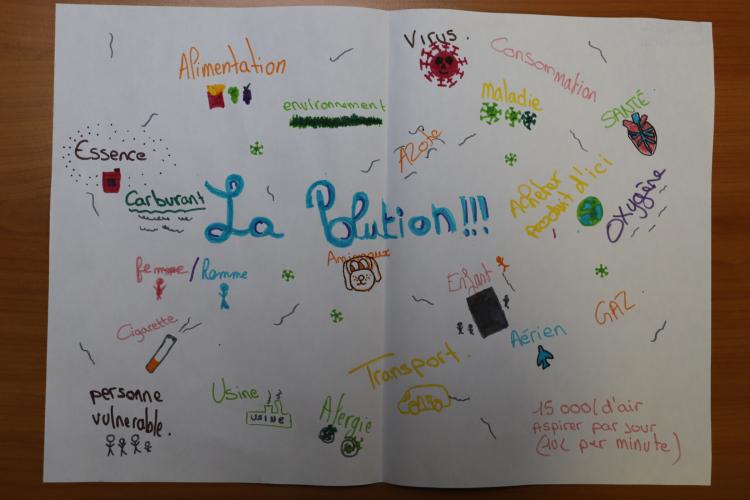 Virus.
Alimentation
Consommation
maladie
environnement
SANTÉ
Azote
Essence
Carburant
La Polution!!!
Acheter
Produit d'ici
Oxygène
femme/Homme
Animaux
Enfant
GAZ
Cigarette
Aérien
Transport.
personne
vulnérable.
Usine
USINE
Alergie
15 000l d'air
Aspirer par jour
(10L per minute)